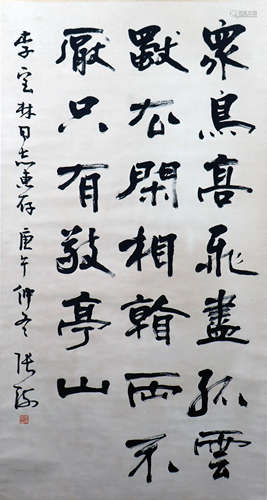 眾鳥高飛盡孤雲
獨去閑相看兩不
厭只有敬亭山
李宝林同志惠存 庚午仲冬 张海